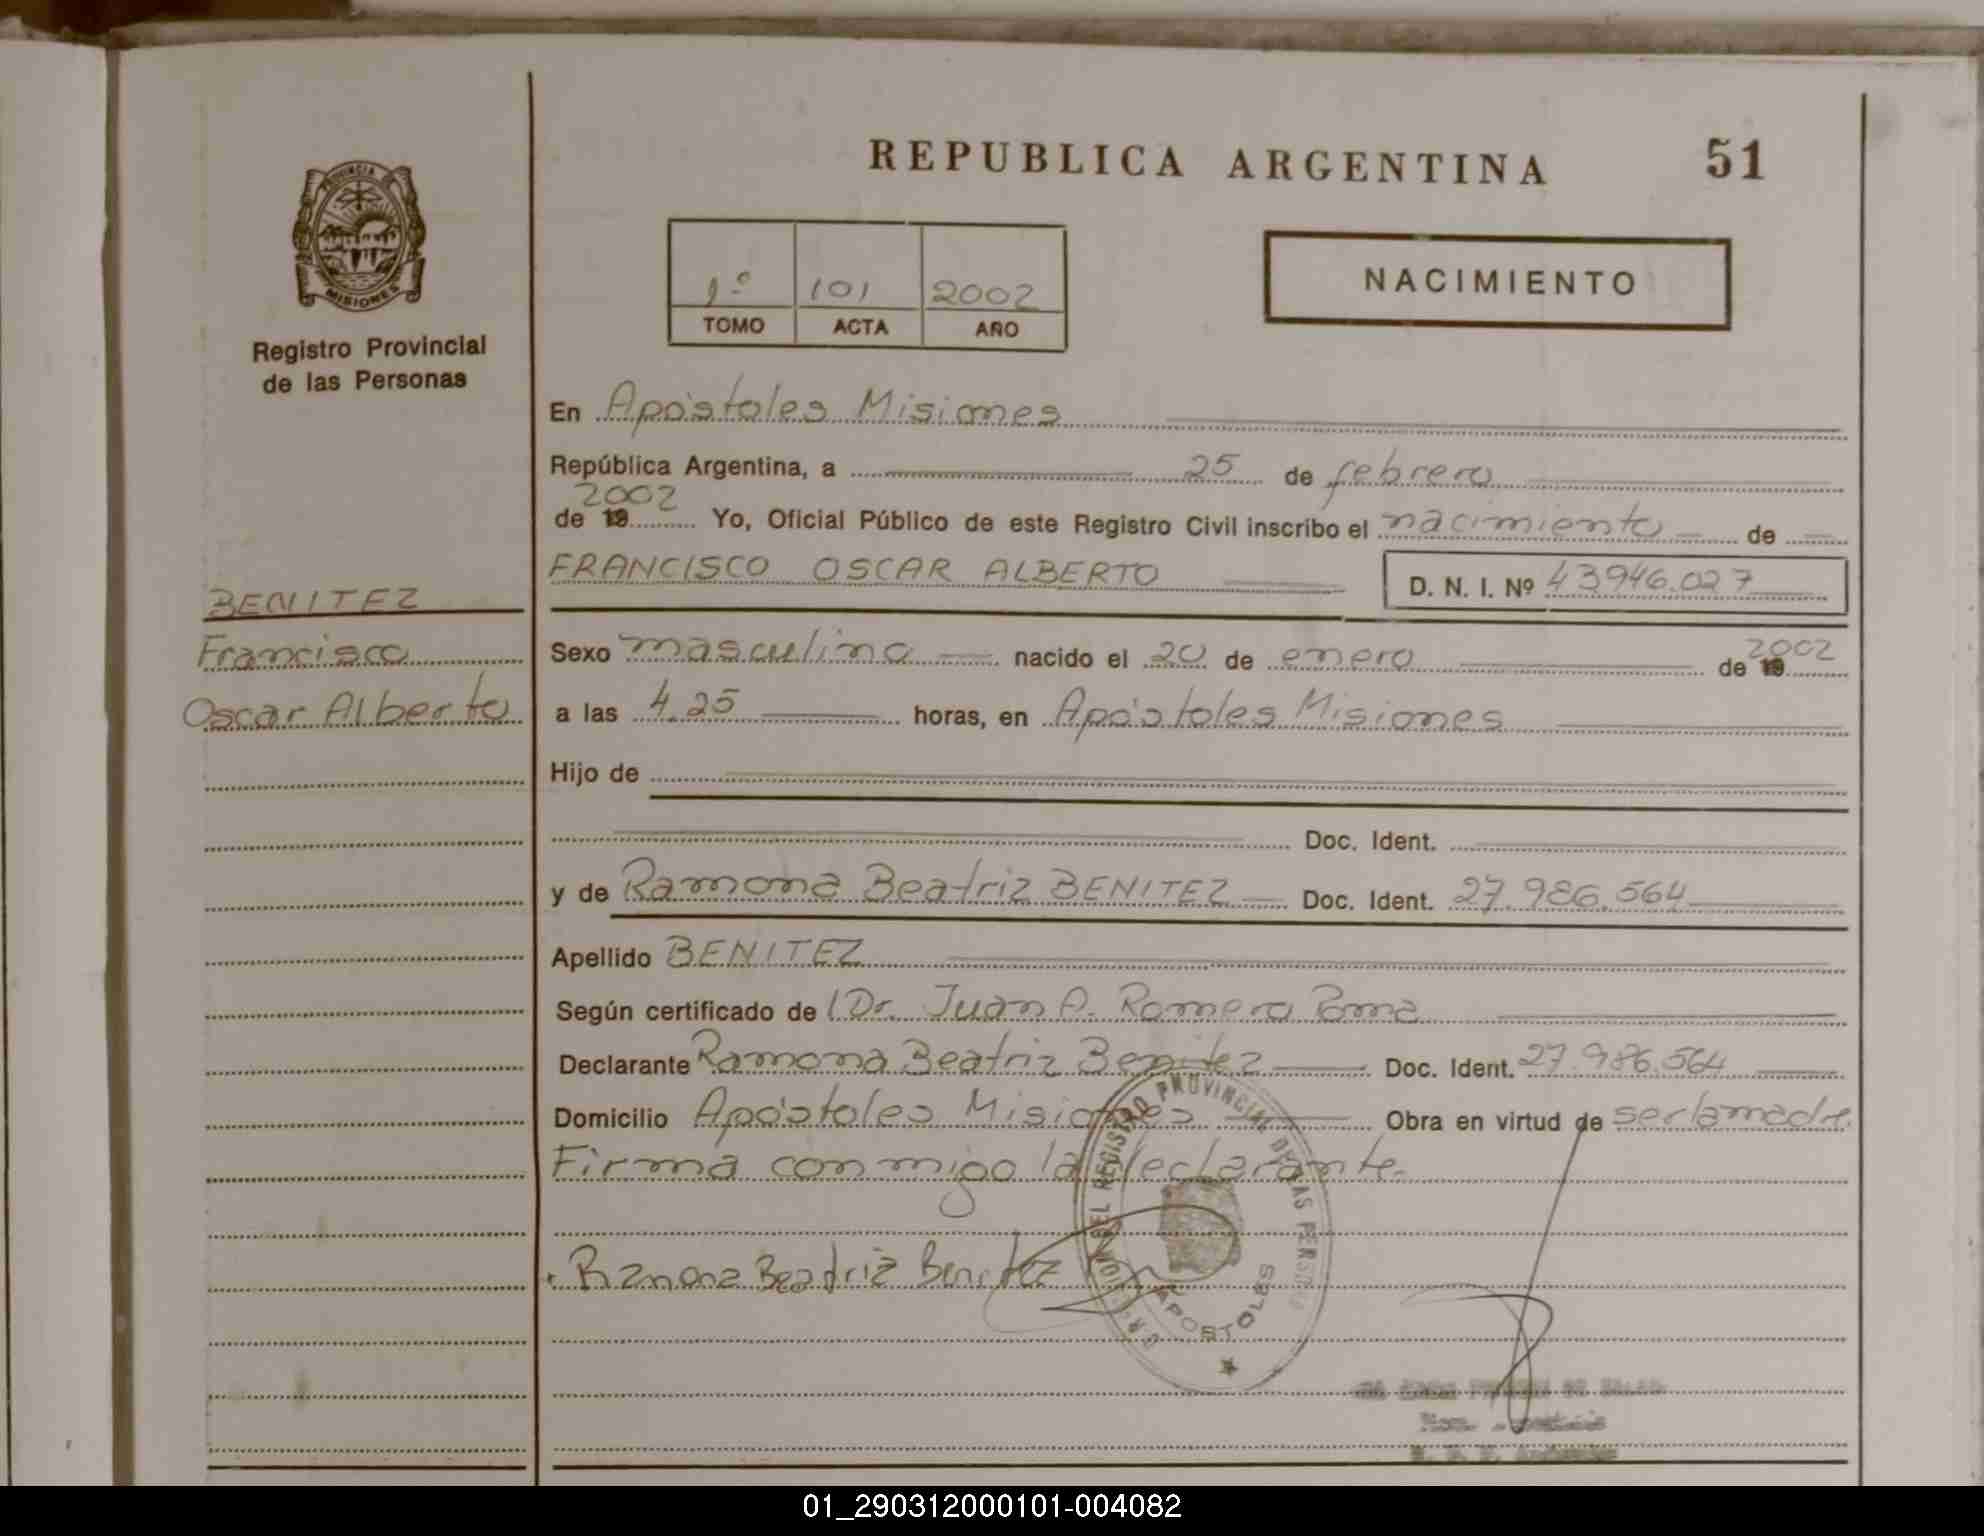 REPUBLICA ARGENTINA 51
PROVINCIA DE
MISIONES
Registro Provincial
de las Personas
1º 101 2002
TOMO ACTA AÑO
NACIMIENTO
En Apóstoles Misiones
República Argentina, a 25 de febrero
de 19 2002 Yo, Oficial Público de este Registro Civil inscribo el nacimiento de
FRANCISCO OSCAR ALBERTO D. N. I. Nº 43946.027
BENITEZ
Francisco
Oscar Alberto
Sexo masculino nacido el 20 de enero de 19 2002
a las 4.25 horas, en Apóstoles Misiones
Hijo de
Doc. Ident.
y de Ramona Beatriz BENITEZ Doc. Ident. 27.986.564
Apellido BENITEZ
Según certificado de Dr. Juan A. Romero Poma
Declarante Ramona Beatriz Benitez Doc. Ident. 27.986.564
Domicilio Apóstoles Misiones Obra en virtud de ser la madre.
Firma conmigo la declarante.
Ramona Beatriz Benitez
DEL REGISTRO PROVINCIAL DE LAS PERSONAS
APOSTOLES
01_290312000101-004082